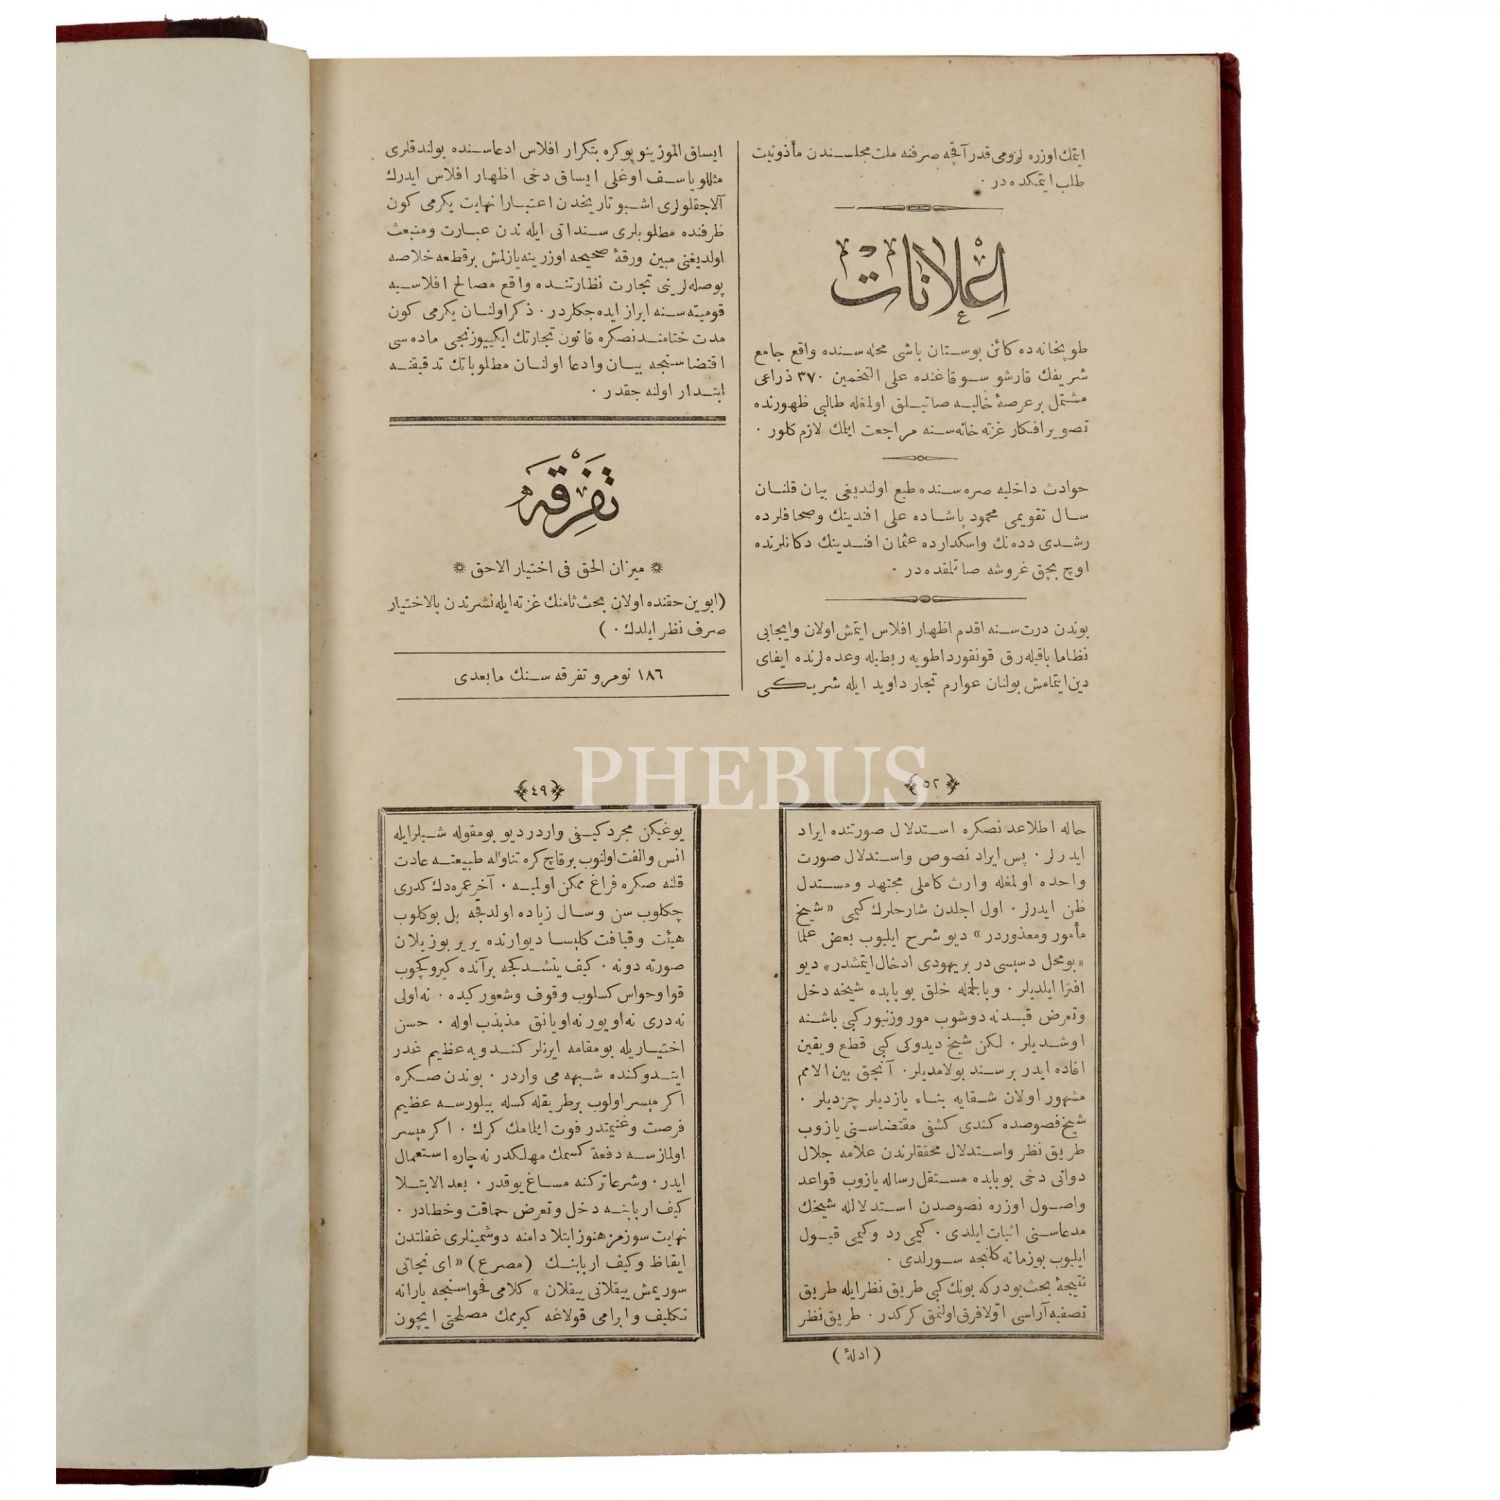 ایتمك اوزره لزومی قدر آقچه صرفنه ملت مجلسندن مأذونیت
طلب ایتمكده در ·
اعلانات
طوپخانه ده كائن بوستان باشی محله سنده واقع جامع
شریفك قارشو سوقاغنده علی التخمین ٣٧٠ ذراعی
مشتمل بر عرصهٔ خالیه صاتیلق اولمغله طالبی ظهورنده
تصویر افكار غزته خانه سنه مراجعت ایلك لازم كلور ·
حوادث داخلیه صره سنده طبع اولندیغی بیان قلنان
سال تقویمی محمود پاشاده علی افندینك و صحافلرده
رشدی ددەنك و اسكدارده عثمان افندینك دكانلرنده
اوچ بچق غروشه صاتلقده در ·
بوندن درت سنه اقدم اظهار افلاس ایتمش اولان و ایجابی
نظاما باقیله رق قونقورداطویه ربطیله وعده لرنده ایفای
دین ایتمامش بولنان عوارم تجار داوید ایله شریكی
ایساق الموزینو بوكره بتكرار افلاس ادعاسنده بولندقلری
مثللو یاسف اوغلی ایساق دخی اظهار افلاس ایدرك
آلاجقلولری اشبو تاریخدن اعتبارا نهایت یكرمی كون
ظرفنده مطلوبلری سنداتی ایله ندن عبارت و منبعث
اولدیغنی مبین ورقهٔ صحیحه اوزرینه یازلمش بر قطعه خلاصه
پوصله لرینی تجارت نظارتنده واقع مصالح افلاسیه
قومیته سنه ابراز ایده جكلردر · ذكر اولنان یكرمی كون
مدت ختامندنصكره قانون تجارتك ایكیوزنجی ماده سی
اقتضاسنجه بیان وادعا اولنان مطلوباتك تدقیقنه
ابتدار اولنه جقدر ·
تفرقه
❊ میزان الحق فی اختیار الاحق ❊
(ابوین حقنده اولان بحث ثامنك غزته ایله نشرندن بالاختیار
صرف نظر ایلدك · )
١٨٦ نومرو تفرقه سنك مابعدی
PHEBUS
٥٢
حاله اطلاعدنصكره استدلال صورتنده ایراد
ایدرلر · پس ایراد نصوص و استدلال صورت
واحده اولمغله وارث كاملی مجتهد و مستدل
ظن ایدرلر · اول اجلدن شارحلرك كیمی «شیخ
مأمور و معذوردر» دیو شرح ایلیوب بعض علما
«بومحل دسیسی در بریهودی ادخال ایتمشدر» دیو
افترا ایلدیلر · و بالجمله خلق بو بابده شیخه دخل
وتعرض قیدنه دوشوب مور وزنبوركبی باشنه
اوشدیلر · لكن شیخ دیدوكی كبی قطع و یقین
افاده ایدر برسند بولامدیلر · آنجق بین الامم
مشهور اولان شقایه بناء یازدیلر چزدیلر ·
شیخ فصوصده كندی كشفی مقتضاسنی یازوب
طریق نظر و استدلال محققلرندن علامه جلال
دوانی دخی بو بابده مستقل رساله یازوب قواعد
واصول اوزره نصوصدن استدلالله شیخك
مدعاسنی اثبات ایلدی · كیمی رد و كیمی قبول
ایلیوب بوزمانه كلنجه سورلدی ·
نتیجهٔ بحث بودركه بونك كبی طریق نظر ایله طریق
تصفیه آراسی اولا فرق اولنمق كركدر · طریق نظر
(ادلهٔ)
٤٩
یوغیكن مجرد كیفی واردر دیو بومقوله شیلر ایله
انس والفت اولنوب برقاچ كره تناوله طبیعته عادت
قلنه صكره فراغ ممكن اولمیه · آخر عمره دك كدری
چكلوب سن و سال زیاده اولدقجه بل بوكلوب
هیئت و قیافت كلیسا دیوارنده یریر بوزیلان
صورته دونه · كیف یتشدكجه برآنده كیروكچوب
قوا وحواس كسلوب وقوف وشعور كیده · نه اولی
نه دری نه اویور نه اویانق مذبذب اوله · حسن
اختیاریله بومقامه ایرنلر كندویه عظیم غدر
ایتدوكنده شبهه می واردر · بوندن صكره
اكر میسر اولوب برطریقله كسله بیلورسه عظیم
فرصت و غنیمتدر فوت ایلمامك كرك · اكر میسر
اولمازسه دفعة كسمك مهلكدر نه چاره استعمال
ایدر · وشرعا تركنه مساغ یوقدر · بعد الابتلا
كیف اربابنه دخل وتعرض حماقت وخطادر ·
نهایت سوزمز هنوز ابتلا دامنه دوشمینلری غفلتدن
ایقاظ و كیف اربابنك (مصرع) «ای نجاتی
سوریمش ییقلانی ییقلان» كلامی فحواسنجه یارانه
تكلیف وابرامی قولاغه كیرمك مصلحتی ایچون